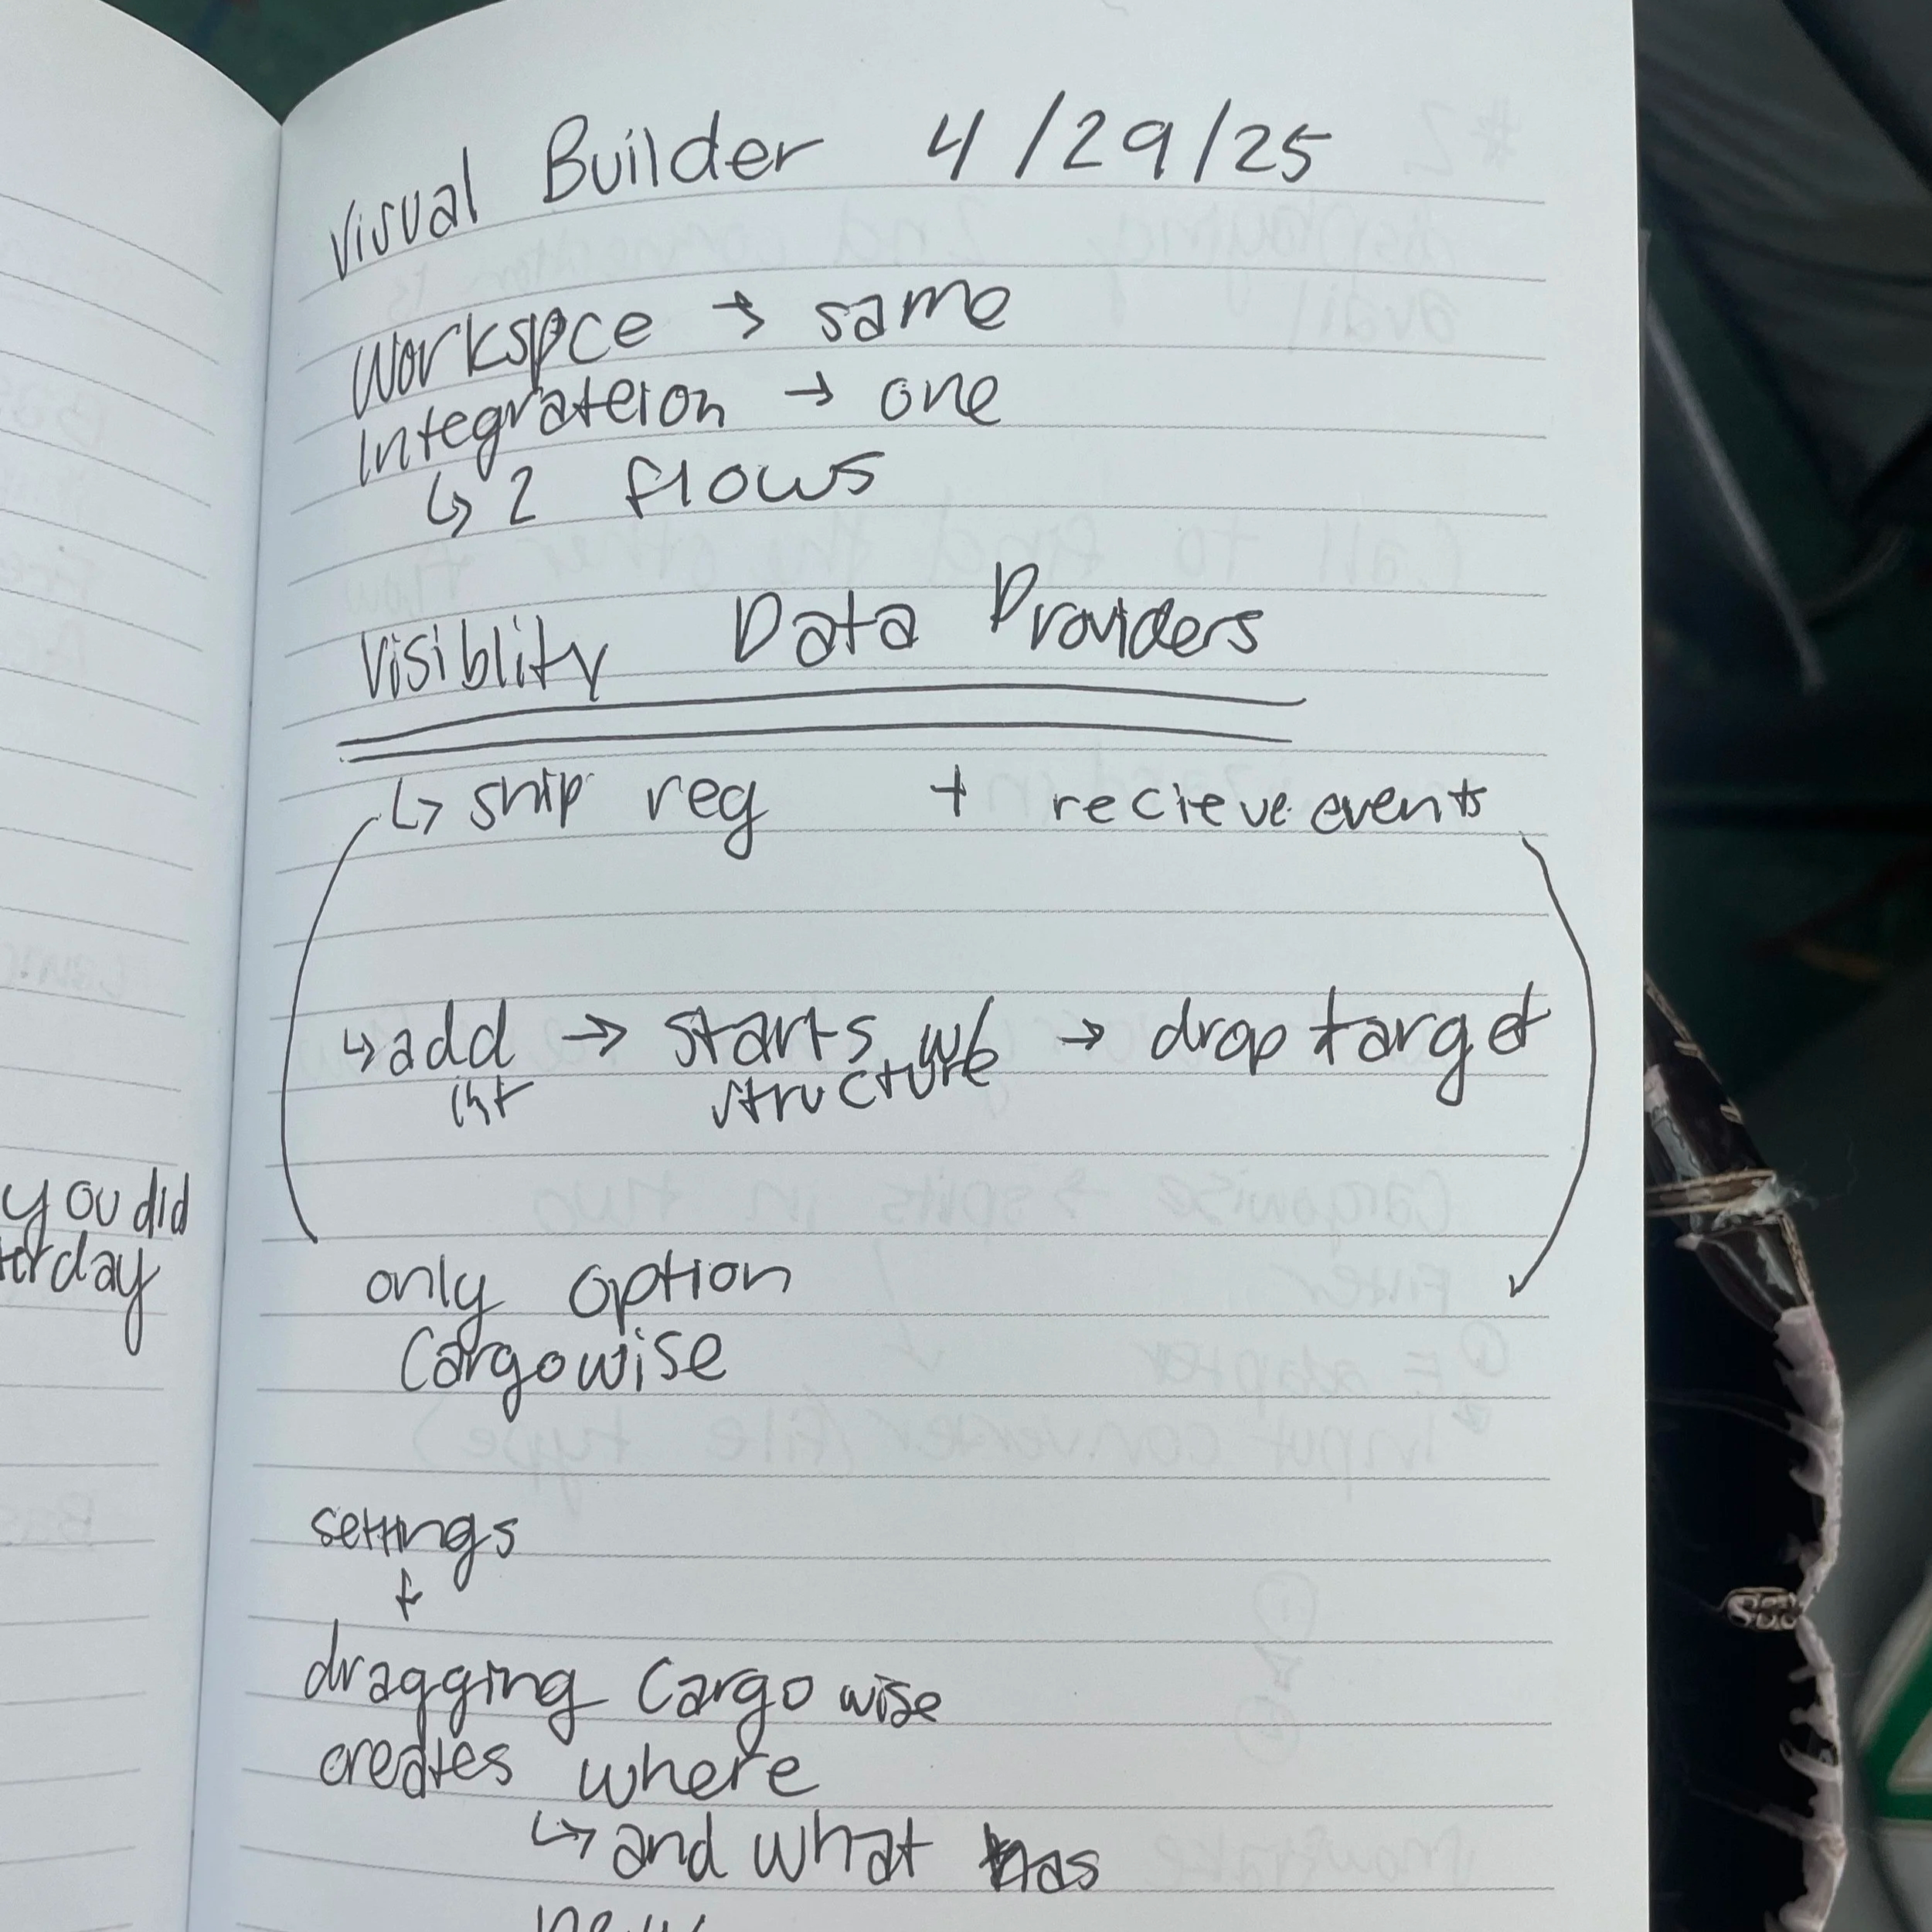 Visual Builder 4/29/25
Workspce → same
Integrateion → one
↳ 2 flows
Visiblity Data Providers
↳ ship reg + recieve events
↳ add → starts w/ → drop target
int structure
only option
Cargowise
settings
+
dragging Cargowise
creates where
↳ and what has
new
you did
terday